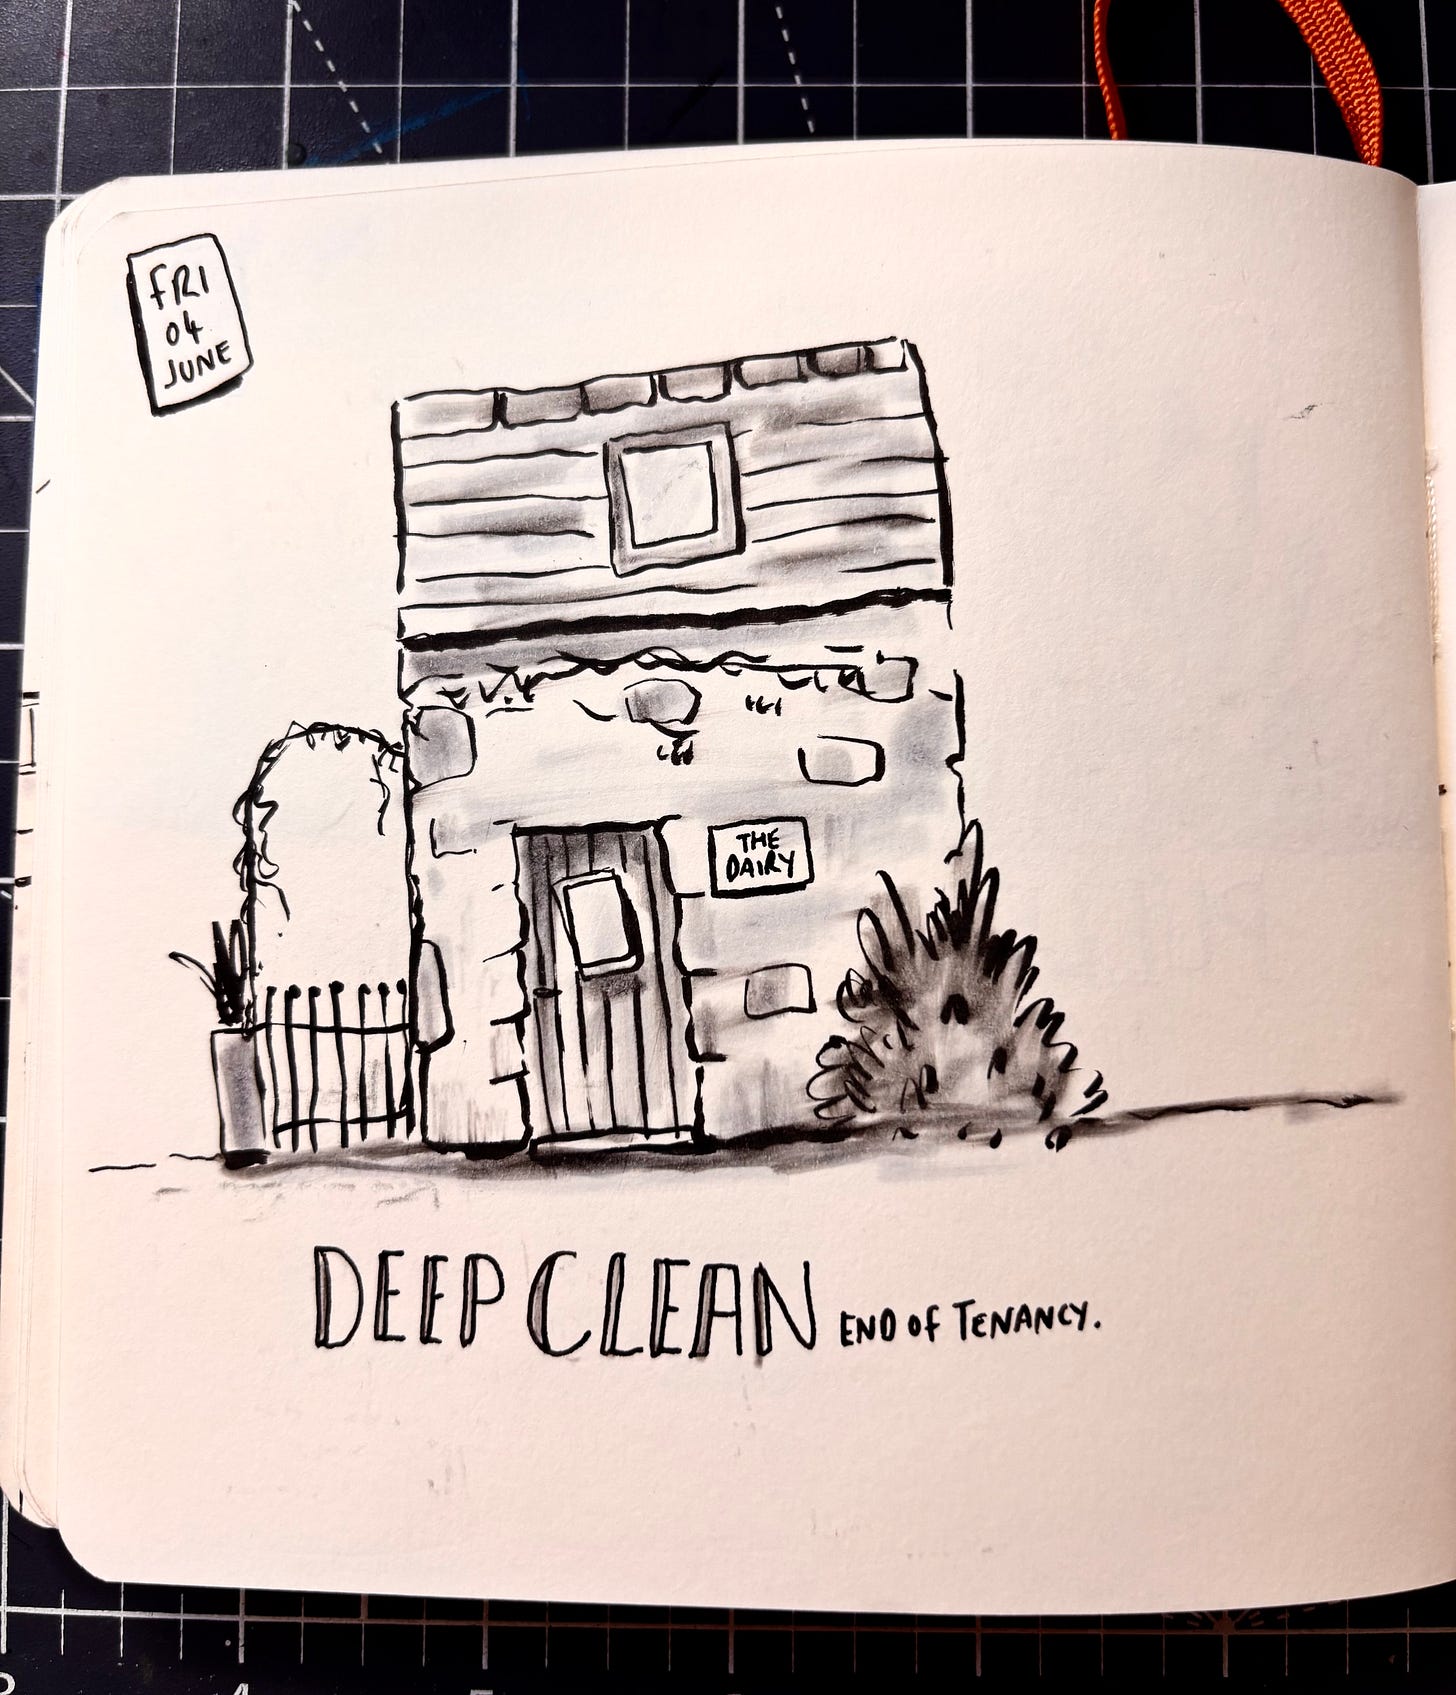 FRI
04
JUNE
THE
DAIRY
DEEP CLEAN END OF TENANCY.
4